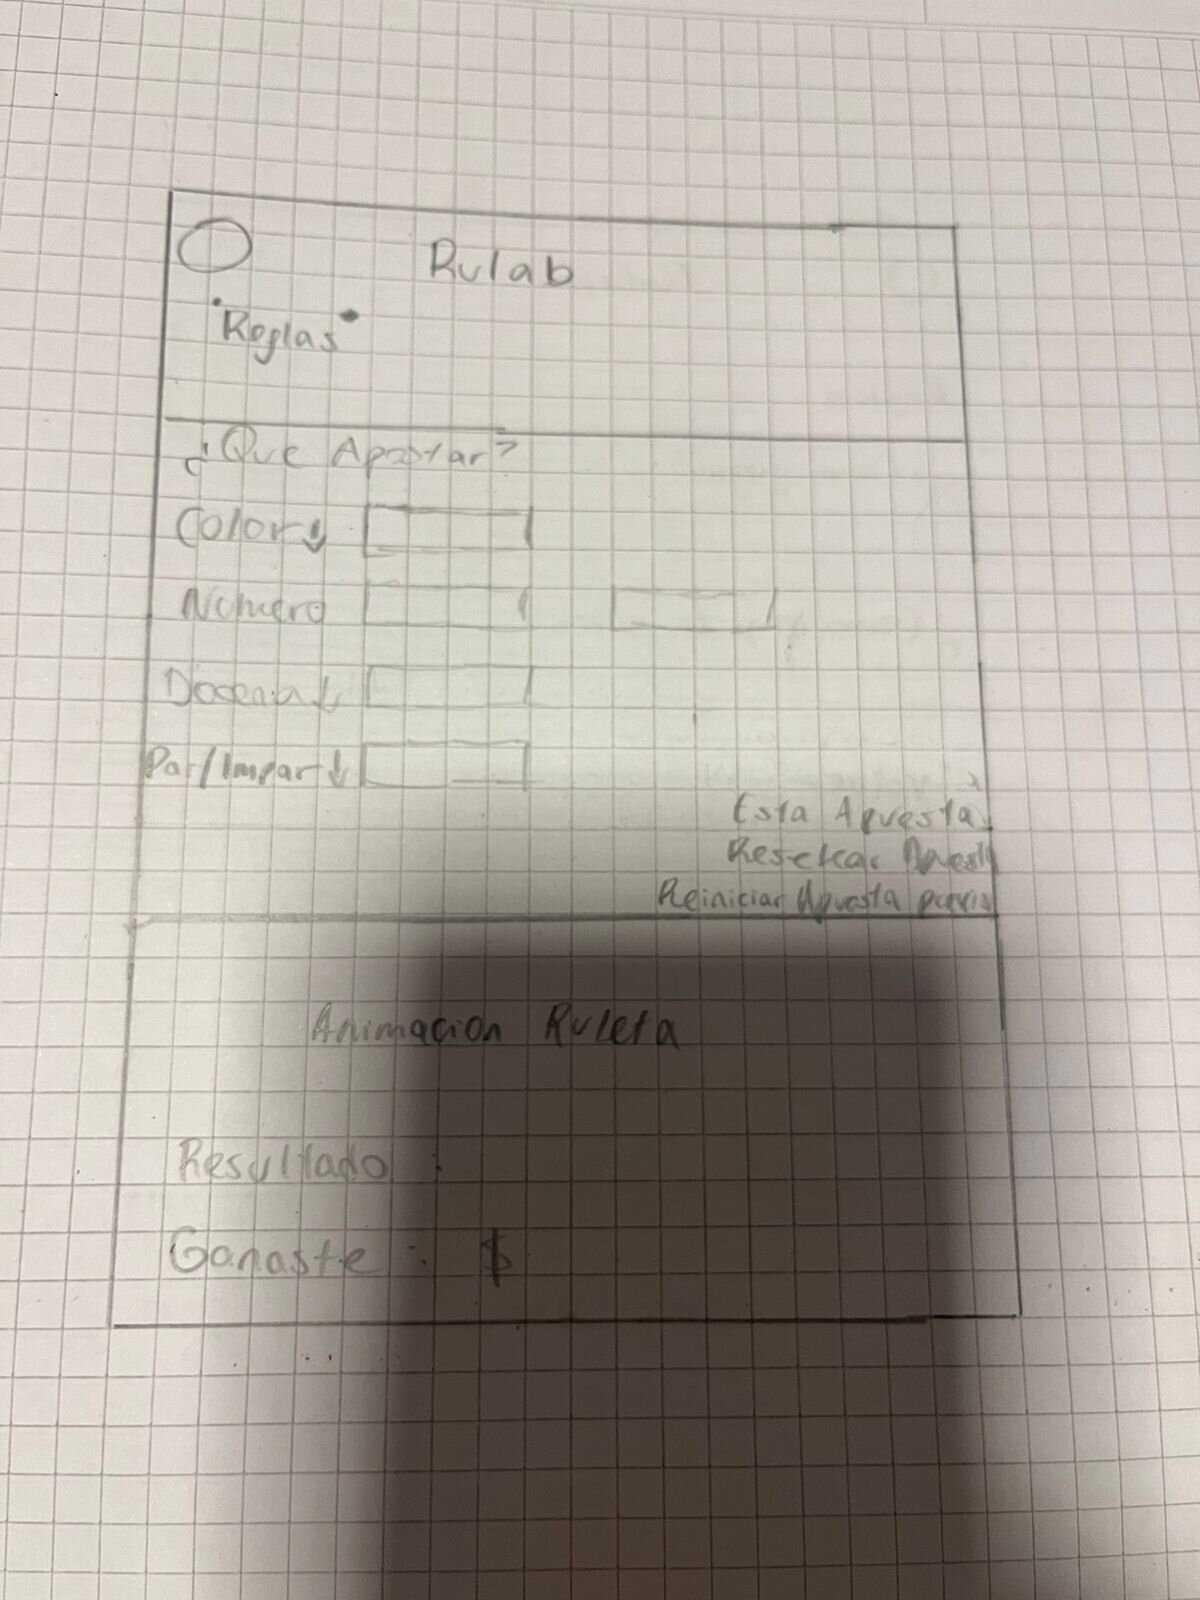 Rulab
"Reglas"
¿Que Apostar?
Color ↓
Número
Docena ↓
Par/Impar ↓
Esta Apuesta
Resetear Apuesta
Reiniciar Apuesta previa
Animacion Ruleta
Resultado :
Ganaste : $